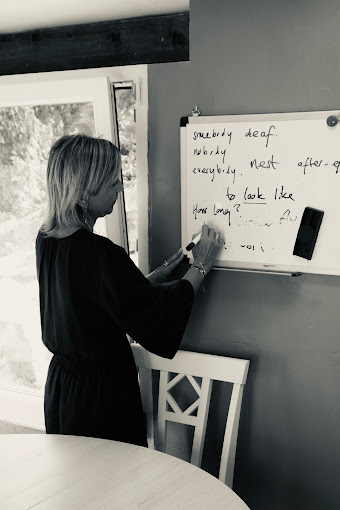 somebody deaf.
nobody
everybody. nest after-e
to look like
How long? flu